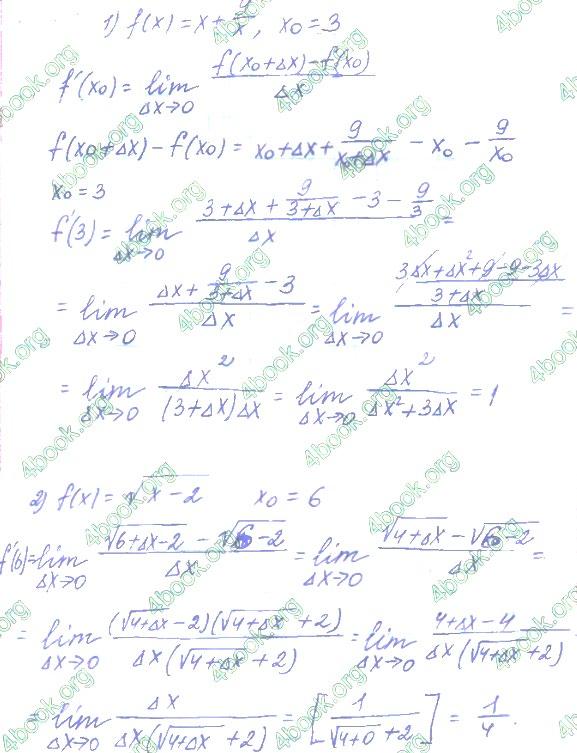 1) f(x) = x + 9/x, x₀ = 3
f'(x₀) = lim Δx→0 (f(x₀+Δx) − f(x₀))/Δx
f(x₀+Δx) − f(x₀) = x₀ + Δx + 9/(x₀+Δx) − x₀ − 9/x₀
x₀ = 3
f'(3) = lim Δx→0 (3 + Δx + 9/(3+Δx) − 3 − 9/3)/Δx =
= lim Δx→0 (Δx + 9/(3+Δx) − 3)/Δx = lim Δx→0 ((3Δx + Δx² + 9 − 9 − 3Δx)/(3+Δx))/Δx =
= lim Δx→0 Δx²/((3+Δx)Δx) = lim Δx→0 Δx²/(Δx² + 3Δx) = 1
2) f(x) = √(x−2) x₀ = 6
f'(6) = lim Δx→0 (√(6+Δx−2) − √(6−2))/Δx = lim Δx→0 (√(4+Δx) − √(6−2))/Δx =
= lim Δx→0 ((√(4+Δx) − 2)(√(4+Δx) + 2))/(Δx(√(4+Δx) + 2)) = lim Δx→0 (4+Δx−4)/(Δx(√(4+Δx) + 2))
= lim Δx→0 Δx/(Δx(√(4+Δx) + 2)) = [1/(√(4+0) + 2)] = 1/4.
4book.org